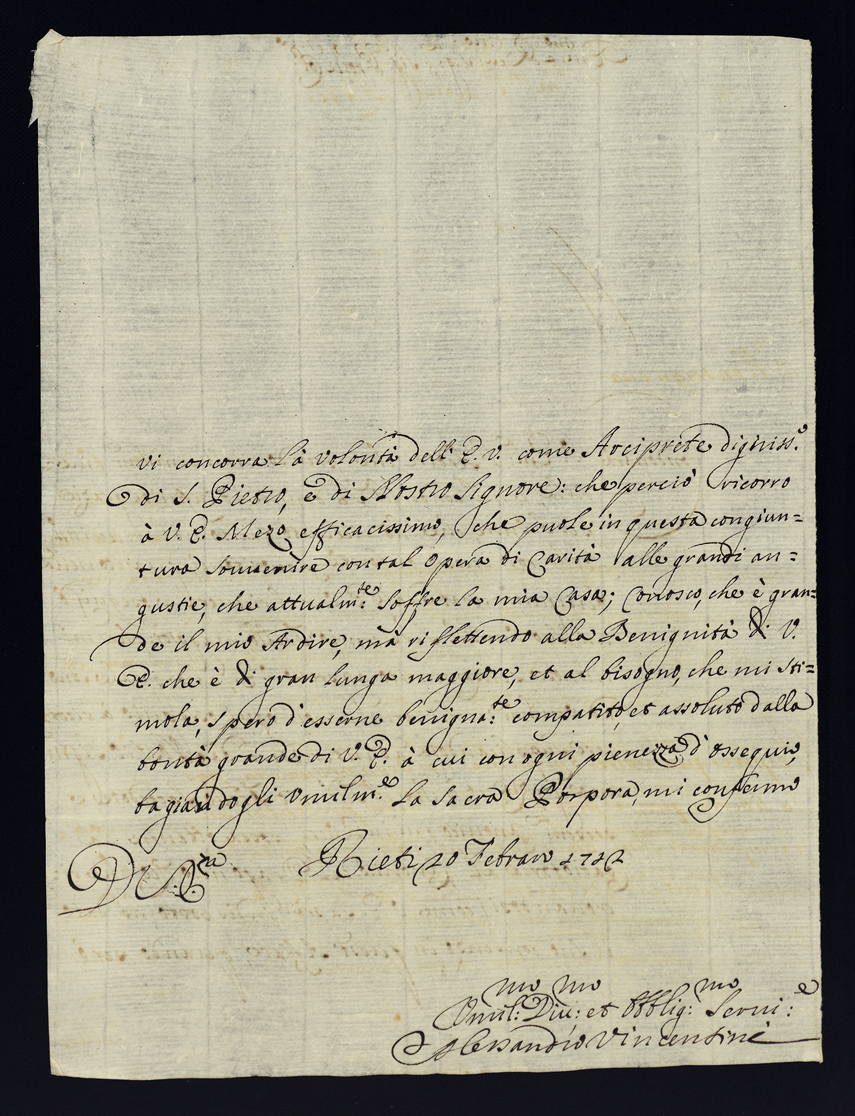 vi concorra la volontà dell' E. V. come Arciprete digniss.º
di S. Pietro, e di Nostro Signore: che perciò ricorro
à V. E. Mezo efficacissimo, che puole in questa congiun=
tura souuenire con tal opera di Carità alle grandi an=
gustie, che attualm:te soffre la mia Casa; Conosco, che è gran=
de il mio Ardire, mà riflettendo alla Benignità di V.
E. che è di gran lunga maggiore, et al bisogno, che mi sti=
mola, spero d'esserne benigna:te compatito, et assoluto dalla
bontà grande di V. E. à cui con ogni pienezza d'ossequio,
bagiandogli Vmilm:e la Sacra Porpora, mi confermo
D V. E.za Rieti 20 Febraro 1712
Vmil:mo Diu:mo et Obblig:mo Seruī:e
Alessandro Vincentini